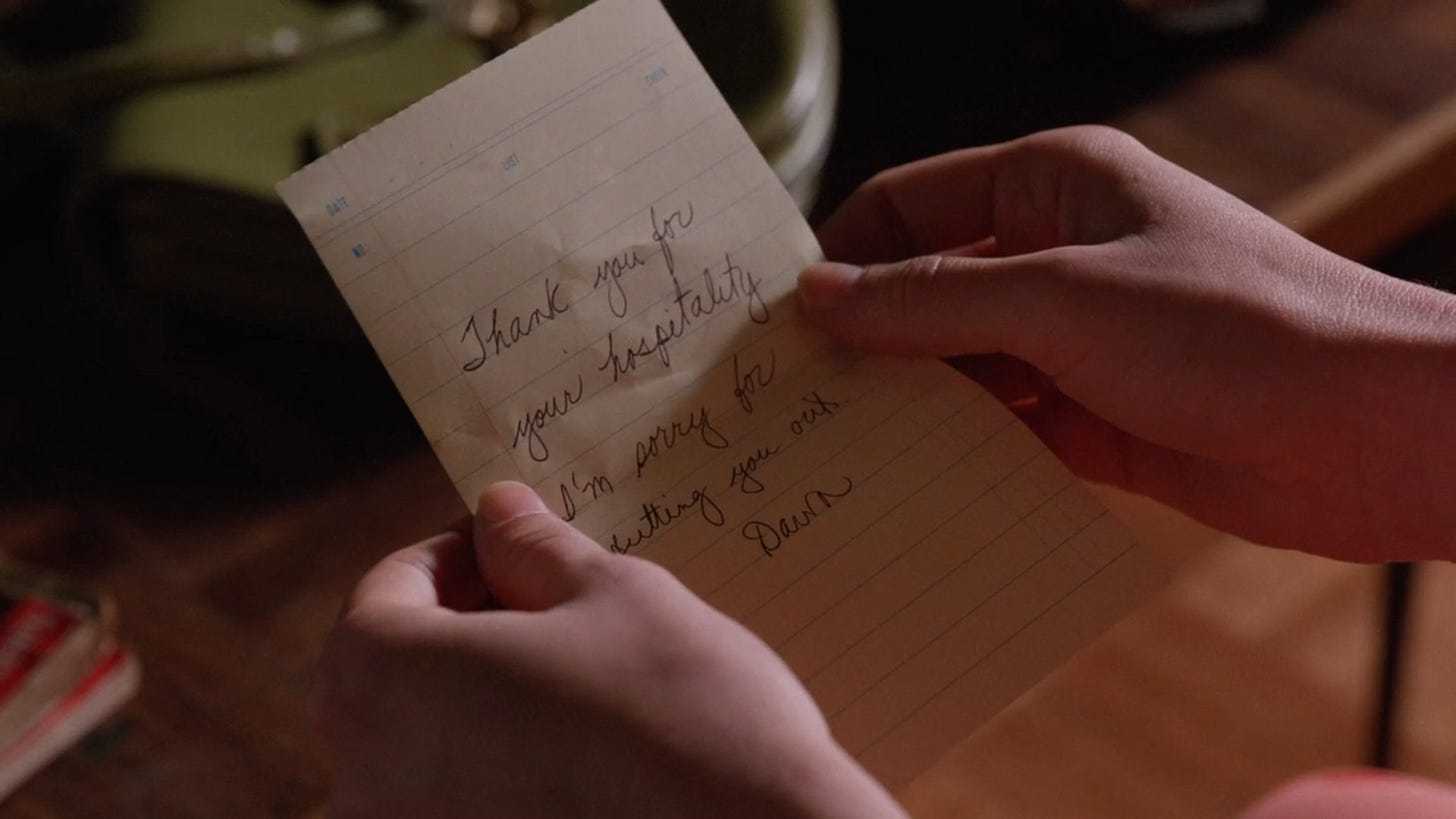 DATE
NO.
Thank you for
your hospitality
I'm sorry for
putting you out.
Dawn